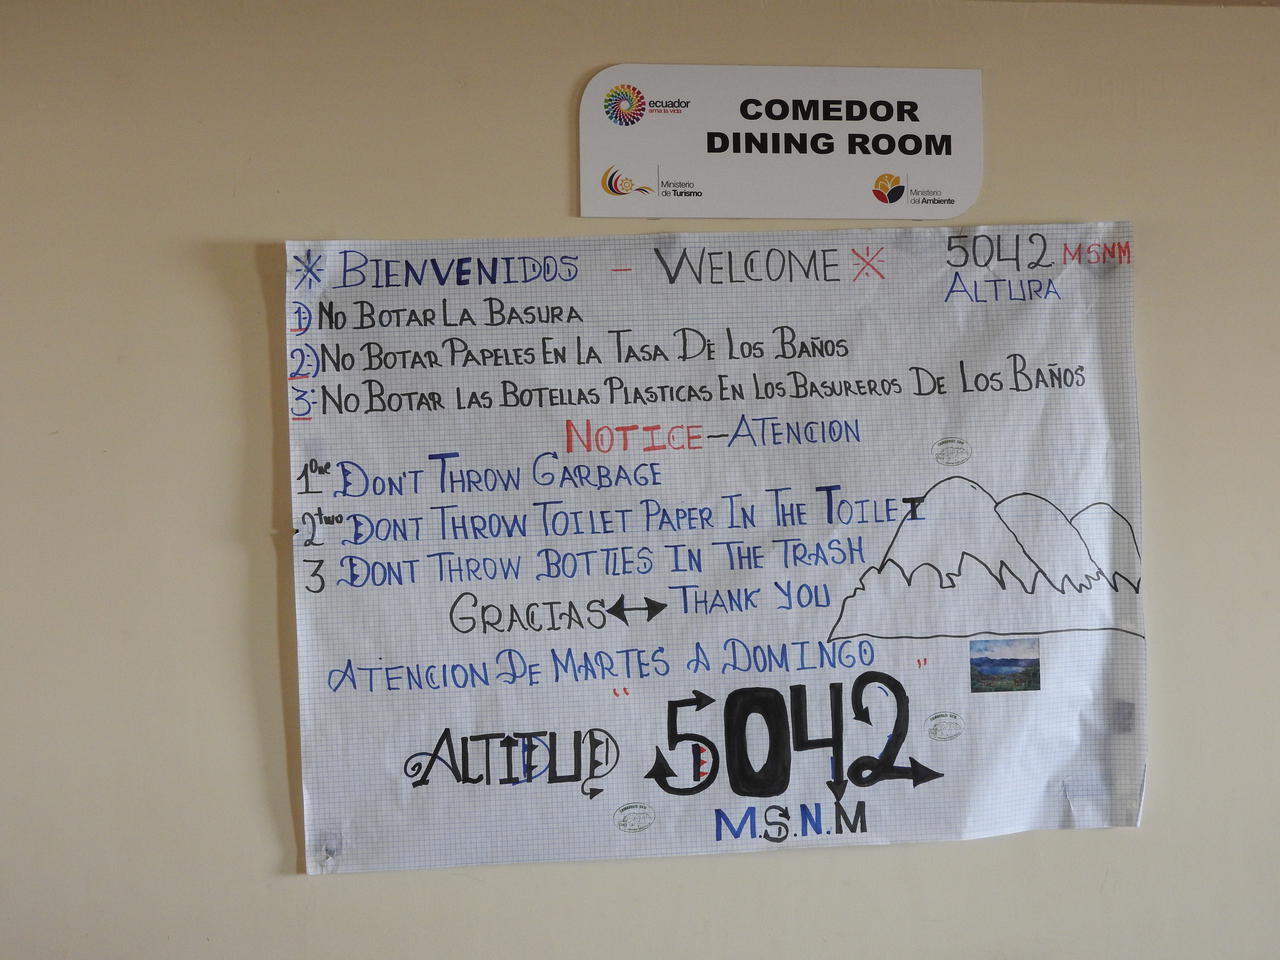 ecuador
ama la vida
COMEDOR
DINING ROOM
Ministerio
de Turismo
Ministerio
del Ambiente
BIENVENIDOS - WELCOME 5042 MSNM
ALTURA
1) NO BOTAR LA BASURA
2) NO BOTAR PAPELES EN LA TASA DE LOS BAÑOS
3: NO BOTAR LAS BOTELLAS PLASTICAS EN LOS BASUREROS DE LOS BAÑOS
NOTICE - ATENCION
1 One DON'T THROW GARBAGE
2 two DONT THROW TOILET PAPER IN THE TOILET
3 DONT THROW BOTTLES IN THE TRASH
GRACIAS ↔ THANK YOU
ATENCION DE MARTES A DOMINGO
ALTITUD "5042"
M.S.N.M